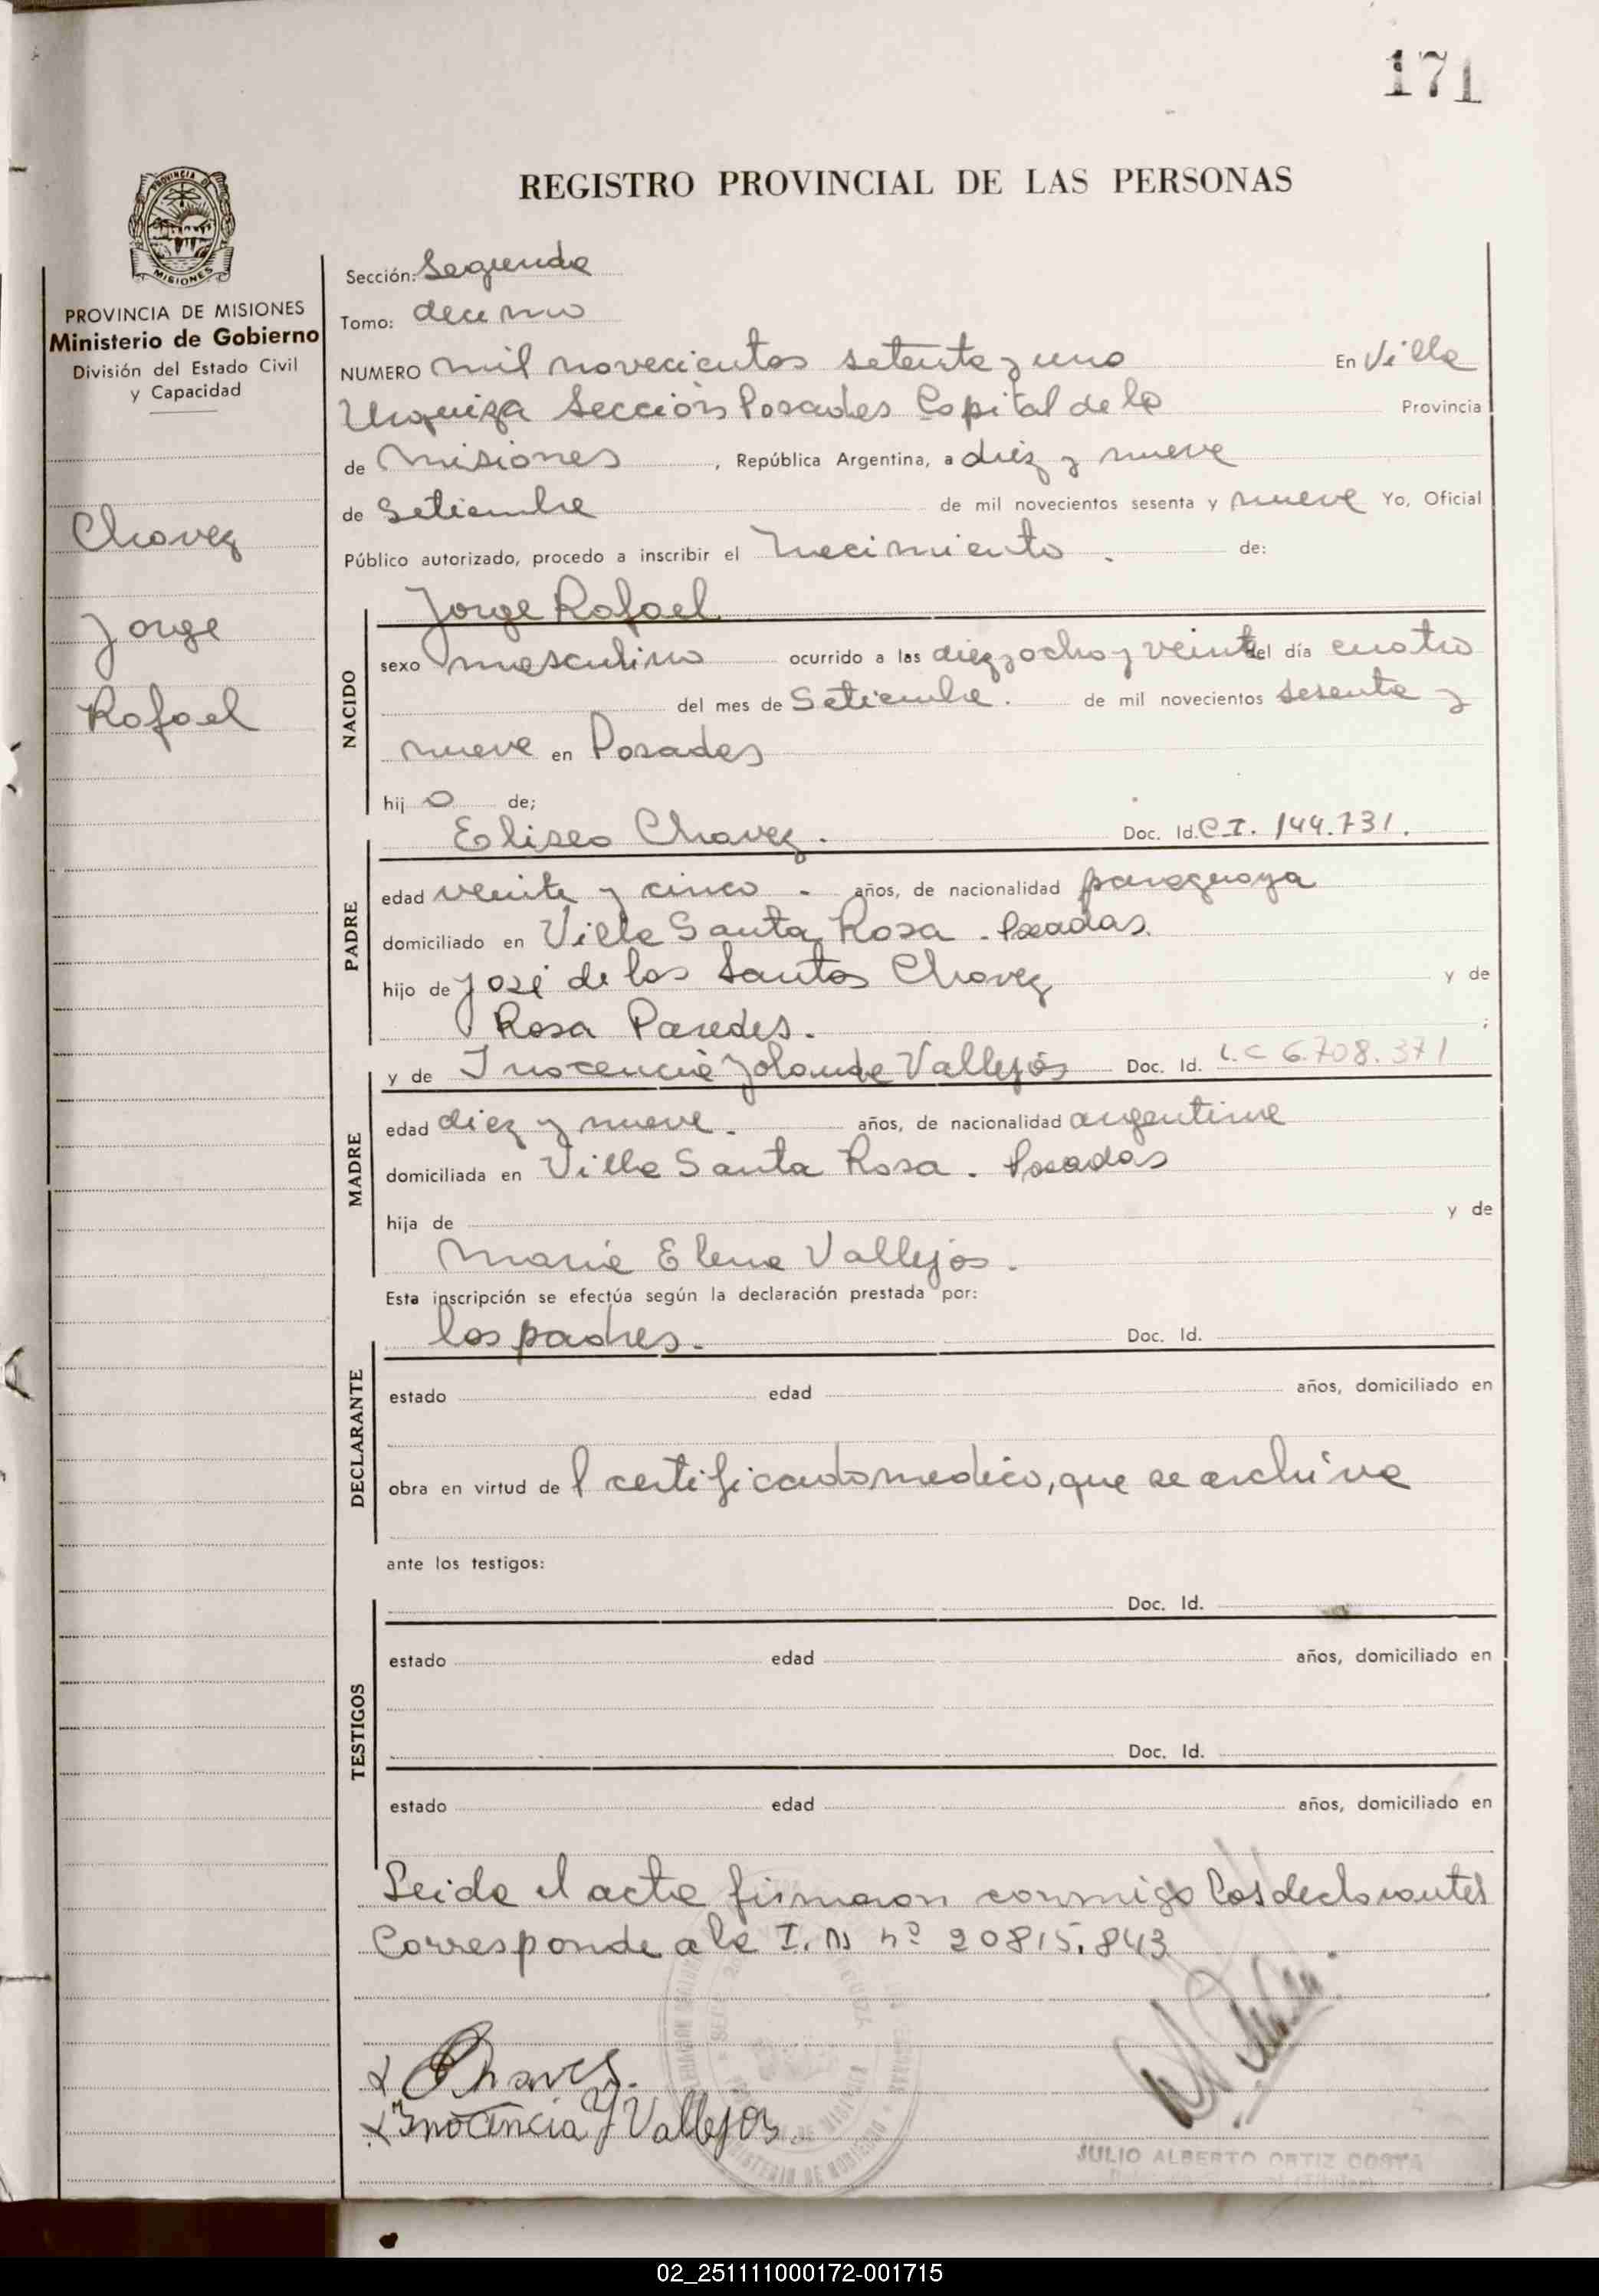 171
REGISTRO PROVINCIAL DE LAS PERSONAS
PROVINCIA DE MISIONES
Ministerio de Gobierno
División del Estado Civil
y Capacidad
Chavez
Jorge
Rafael
Sección: Segunda
Tomo: decimo
NUMERO mil novecientos setenta y uno En Villa
Urquiza Sección Posadas Capital de la Provincia
de Misiones, República Argentina, a diez y nueve
de Setiembre de mil novecientos sesenta y nueve Yo, Oficial
Público autorizado, procedo a inscribir el Nacimiento. de:
NACIDO
Jorge Rafael
sexo masculino ocurrido a las diez y ocho y veinte del día cuatro
del mes de Setiembre. de mil novecientos sesenta y
nueve en Posadas
hijo de;
Eliseo Chavez. Doc. Id. C.I. 144.731.
PADRE
edad veinte y cinco. años, de nacionalidad paraguaya
domiciliado en Villa Santa Rosa. Posadas.
hijo de José de los Santos Chavez y de
Rosa Paredes. ;
y de Inocencia Yolanda Vallejos Doc. Id. L.C 6.708.371
MADRE
edad diez y nueve. años, de nacionalidad argentina
domiciliada en Villa Santa Rosa. Posadas
hija de y de
Maria Elena Vallejos.
Esta inscripción se efectúa según la declaración prestada por:
los padres. Doc. Id.
DECLARANTE
estado edad años, domiciliado en
obra en virtud de l certificado medico, que se archiva
ante los testigos:
Doc. Id.
TESTIGOS
estado edad años, domiciliado en
Doc. Id.
estado edad años, domiciliado en
Leida el acta firmaron conmigo los declarantes
Corresponde a la I. N nº 20815.843
x Chavez.
x Inocencia Y Vallejos.
JULIO ALBERTO ORTIZ COSTA
02_251111000172-001715